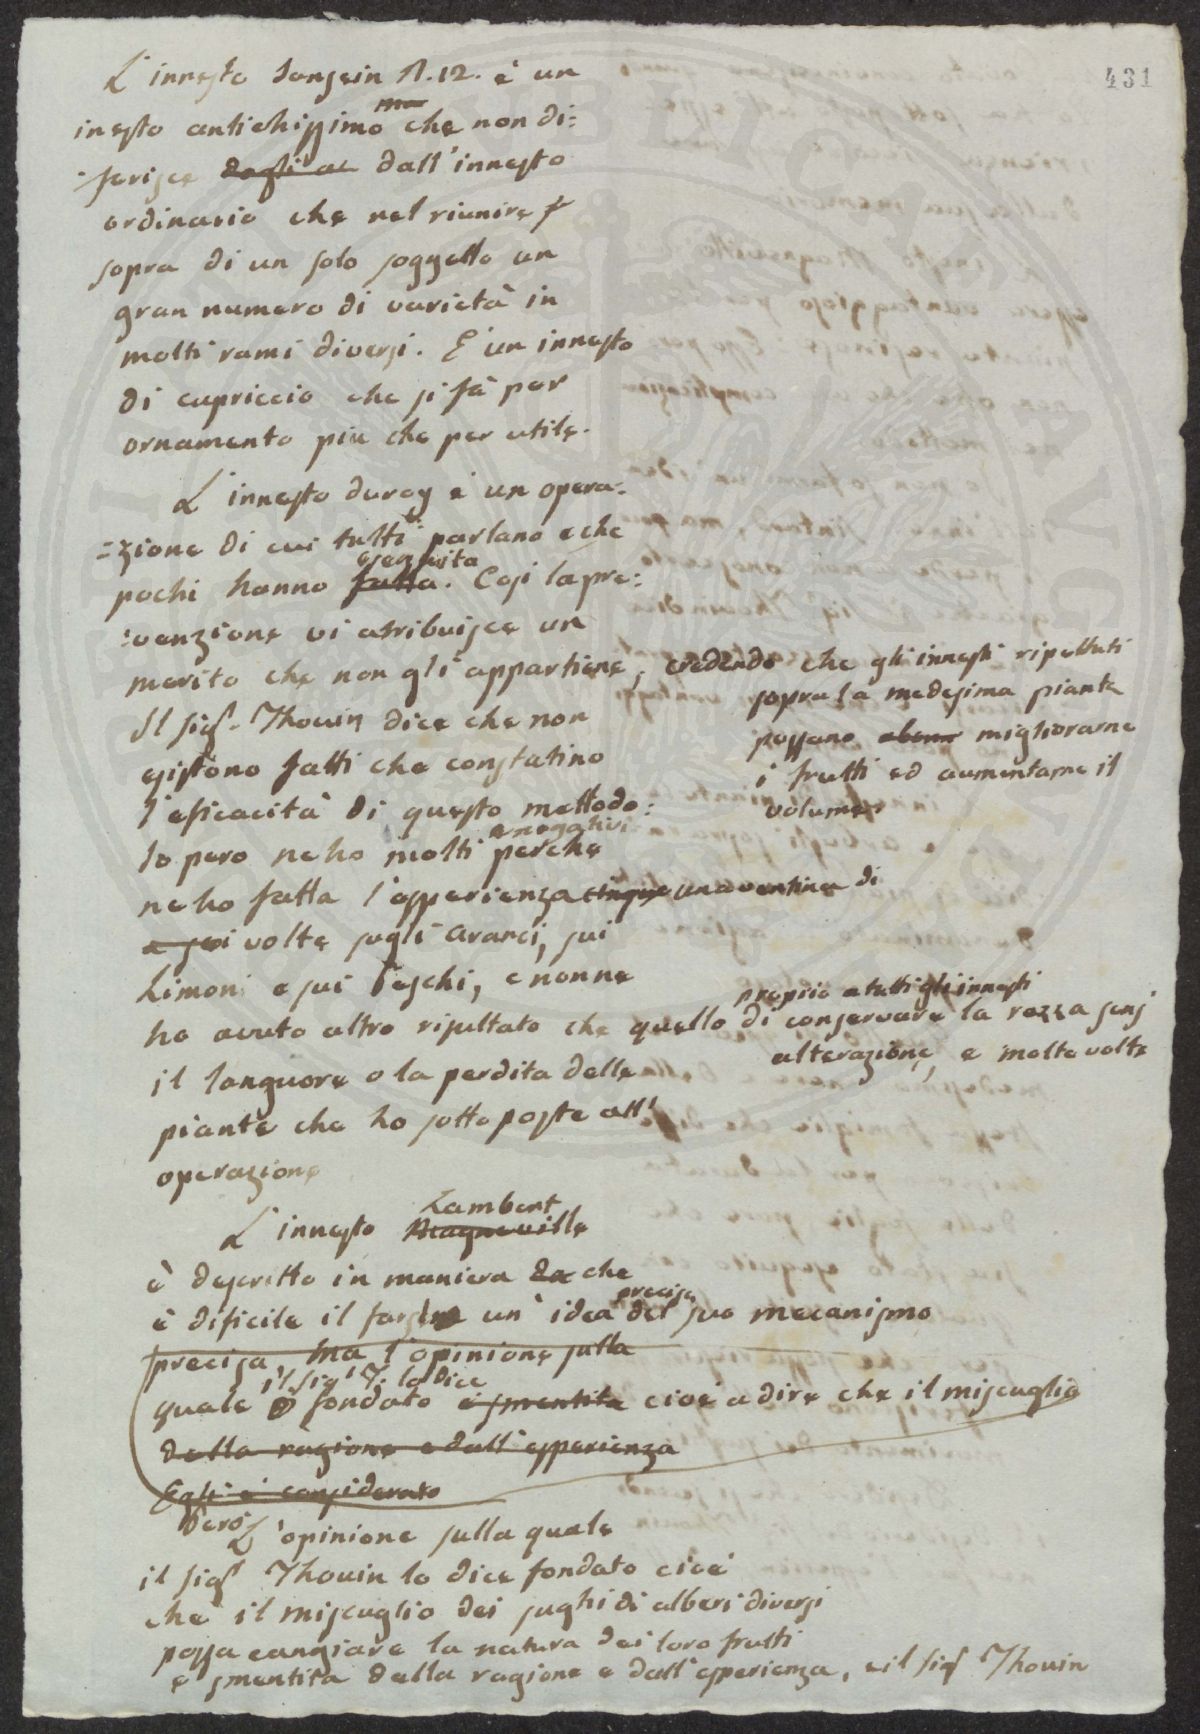 431
L'innesto Sonsein N. 12. è un
inesto antichissimo ma che non di:
ferisce degli al dall'innesto
ordinario che nel riunire
sopra di un solo soggetto un
gran numero di varietà in
molti rami diversi. È un innesto
di capriccio che si fà per
ornamento più che per utile.
L'innesto duroy è un opera:
=zione di cui tutti parlano e che
pochi hanno fatta. eseguita Così la pre:
:venzione vi atribuisce un
merito che non gli appartiene, credendo che gli innesti ripettuti
sopra la medesima pianta
possano migliorarne
i frutti ed aumentarne il
volume.
Il sig.r Thouin dice che non
esistono fatti che constatino
l'eficacità di questo mettodo:
Io pero ne ho molti negativi perche
ne ho fatta l'esperienza cinque una ventina di
e sei volte sugli aranci, sui
Limoni e sui Peschi, e non ne
ho avuto altro risultato che quello proprio a tutti gli innesti di conservare la razza senz
alterazione, e molte volte
il languore o la perdita delle
piante che ho sottoposte all'
operazione
L'innesto Magneville Lambert
è descritto in maniera da che
è dificile il farsene un'idea precisa del suo mecanismo
precisa, ma l'opinione sulla
quale il sig.r T. lo dice è fondato è smentita cioè a dire che il miscuglio
dalla ragione e dall'esperienza
Egli è considerato
Però L'opinione sulla quale
il sig.r Thouin lo dice fondato cioè
che il miscuglio dei sughi di alberi diversi
possa cangiare la natura dei loro frutti
e smentita dalla ragione e dall'esperienza, e il sig.r Thouin